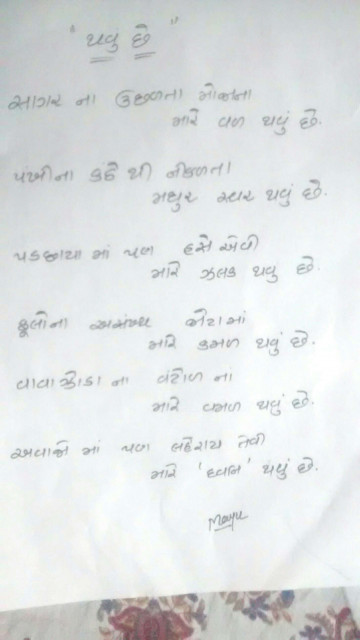 " થવું છે "
સાગર ના ઉછળતા મોજાના
મારે વળ થવું છે.
પંખીના કંઠે થી નીકળતા
મધુર સ્વર થવું છે.
પડછાયા માં પણ હસે એવી
મારે ઝલક થવુ છે.
ફૂલોના અસંખ્ય માં
મારે કમળ થવું છે.
વાવાઝોડા ના વંટોળ ના
મારે વમળ થવું છે.
અવાજો માં પણ લહેરાય તેવી
મારે ' ' થવું છે.